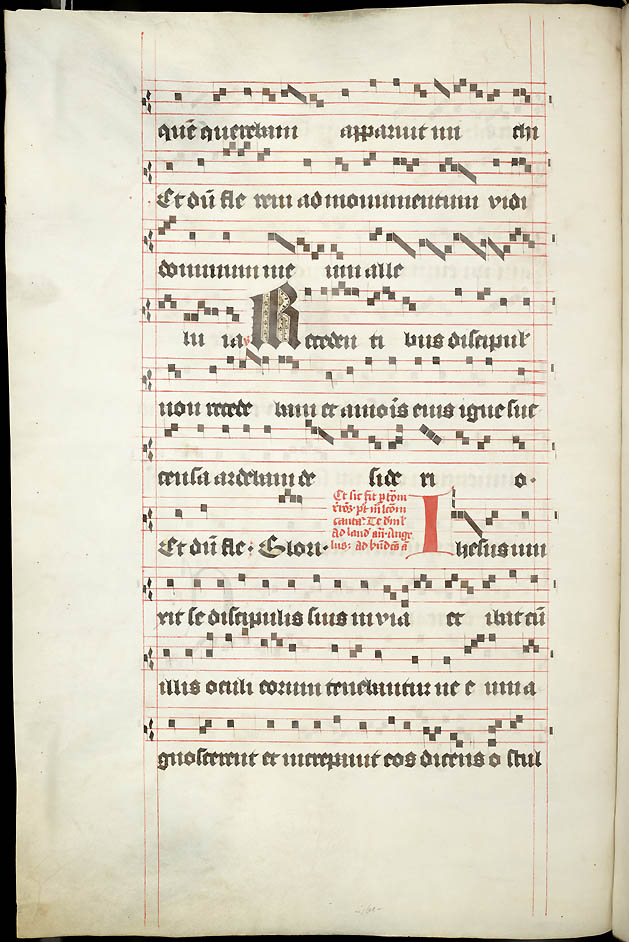 quē querebam apparuit mi chi
Et dū fle rem ad monumentum vidi
dominum me um alle
lu ia Receden ti bus discipul
non recede bam et amoīs eius igne suc
censa ardebam de side ri o.
Et dū fle: Glori.
Et sic fit
Te
Ad laud añ Ange
lus: ad
Ihesus iun
xit se discipulis suis in via et ibat cū
illis oculi eorum tenebantur ne e um a
gnoscerent et increpauit eos dicens o stul